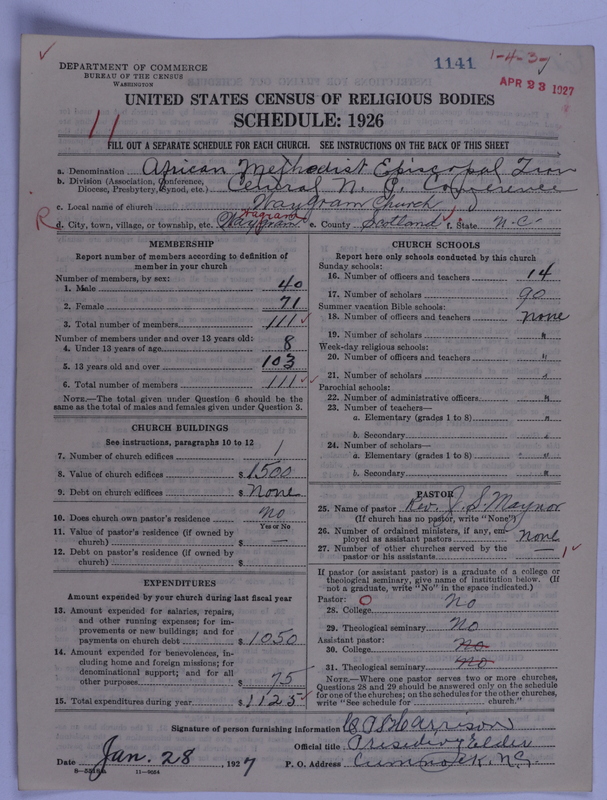 DEPARTMENT OF COMMERCE
BUREAU OF THE CENSUS
WASHINGTON
1141
1-4-3-j
APR 23 1927
UNITED STATES CENSUS OF RELIGIOUS BODIES
SCHEDULE: 1926
11
FILL OUT A SEPARATE SCHEDULE FOR EACH CHURCH. SEE INSTRUCTIONS ON THE BACK OF THIS SHEET
a. Denomination African Methodist Episcopal Zion
b. Division (Association, Conference, Diocese, Presbytery, Synod, etc.) Central N. C. Conference
c. Local name of church Waygram Church
R d. City, town, village, or township, etc. Waygram e. County Scotland f. State N-C-
MEMBERSHIP
Report number of members according to definition of
member in your church
Number of members, by sex:
1. Male 40
2. Female 71
3. Total number of members 111
Number of members under and over 13 years old:
4. Under 13 years of age 8
5. 13 years old and over 103
6. Total number of members 111
NOTE.—The total given under Question 6 should be
same as the total of males and females given under Question 3.
CHURCH BUILDINGS
See instructions, paragraphs 10 to 12
7. Number of church edifices 1
8. Value of church edifices $ 1500
9. Debt on church edifices $ None
10. Does church own pastor's residence No
Yes or No
11. Value of pastor's residence (if owned by
church) $ —
12. Debt on pastor's residence (if owned by
church) $
EXPENDITURES
Amount expended by your church during last fiscal year
13. Amount expended for salaries, repairs,
and other running expenses; for im-
provements or new buildings; and for
payments on church debt $ 1050
14. Amount expended for benevolences, in-
cluding home and foreign missions; for
denominational support; and for all
other purposes $ 75
15. Total expenditures during year $ 1125
CHURCH SCHOOLS
Report here only schools conducted by this church
Sunday schools:
16. Number of officers and teachers 14
17. Number of scholars 90
Summer vacation Bible schools:
18. Number of officers and teachers None
19. Number of scholars "
Week-day religious schools:
20. Number of officers and teachers "
21. Number of scholars "
Parochial schools:
22. Number of administrative officers "
23. Number of teachers—
a. Elementary (grades 1 to 8) "
b. Secondary "
24. Number of scholars—
a. Elementary (grades 1 to 8) "
b. Secondary "
PASTOR
25. Name of pastor Rev. J. S. Maynor
(If church has no pastor, write "None")
26. Number of ordained ministers, if any, em-
ployed as assistant pastors None
27. Number of other churches served by the
pastor or his assistants — 1
If pastor (or assistant pastor) is a graduate of a college or
theological seminary, give name of institution below. (If
not a graduate, write "No" in the space indicated.)
Pastor: O
28. College No
29. Theological seminary No
Assistant pastor:
30. College No
31. Theological seminary No
NOTE.—Where one pastor serves two or more churches,
Questions 28 and 29 should be answered only on the schedule
for one of the churches; on the schedules for the other churches,
write "See schedule for church."
Signature of person furnishing information Harrison
Official title Presiding Elder
Date Jan. 28, 1927 P. O. Address Cumnock, N.C.
11-9084